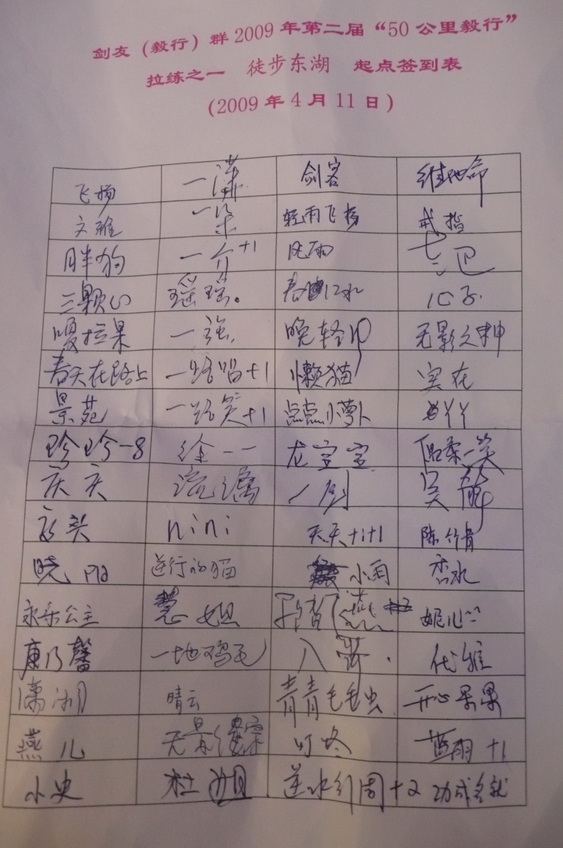 剑友（毅行）群2009年第二届“50公里毅行”
拉练之一 徒步东湖 起点签到表
（2009年4月11日）
飞扬 一潇 剑客
文雅 一朵 轻雨飞扬 戒指
胖狗 一介+1 风雨
三颗心 瑶瑶。
嘎拉果 一
春天在路上 一路唱+1 懒猫 实在
景苑 一路笑+1 点点小萝卜 丫丫
珍珍-8 徐一一 龙宝宝 一笑
庆庆 流漓 一剑 吴
nini 天天+1+1 陈竹青
晓阳 逆行的猫 小雨 香水
永乐公主 慧姐 燕 妮心
康乃馨 一地鸡毛 八哥 优雅
潇湖 晴云 青青毛毛虫 开心果果
燕儿 无影 叮咚 蓝雨+1
小史 杜姐 逆水行周+2 功成名就